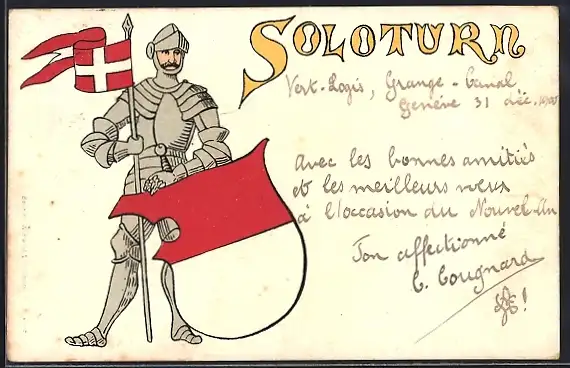 SOLOTURN
Vert-Logis, Grange-Canal
Genève 31 déc. 1900
Avec les bonnes amitiés
et les meilleurs vœux
à l'occasion du Nouvel-An
Ton affectionné
C. Cougnard